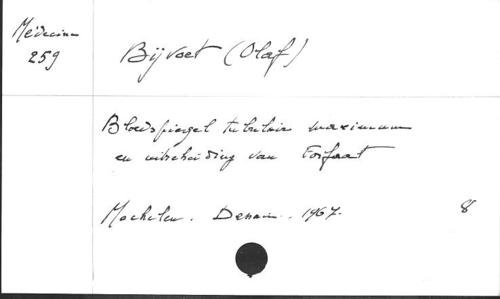 Médecine
259
Bijvoet (Olaf)
Bloedspiegel tubulair maximum
en uitscheiding van Fosfaat
Mechelen. Dessain. 1967. 8